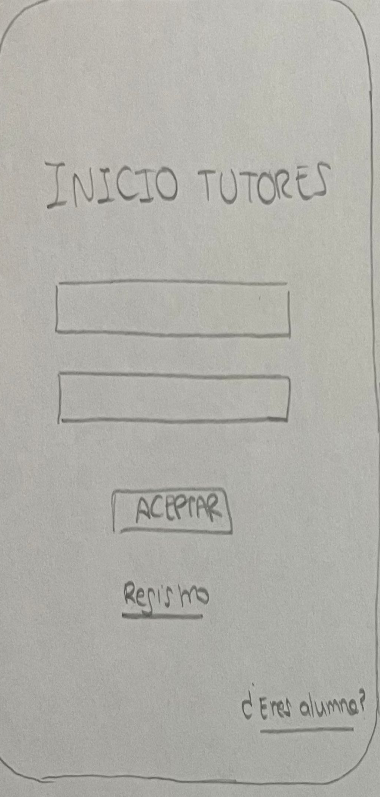 INICIO TUTORES
ACEPTAR
Registro
¿Eres alumno?